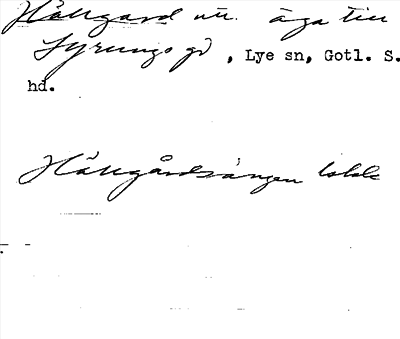 Hällgard nu. äga till
Syrungs gd, Lye sn, Gotl. S.
hd.
Hällgårdsängen lokk